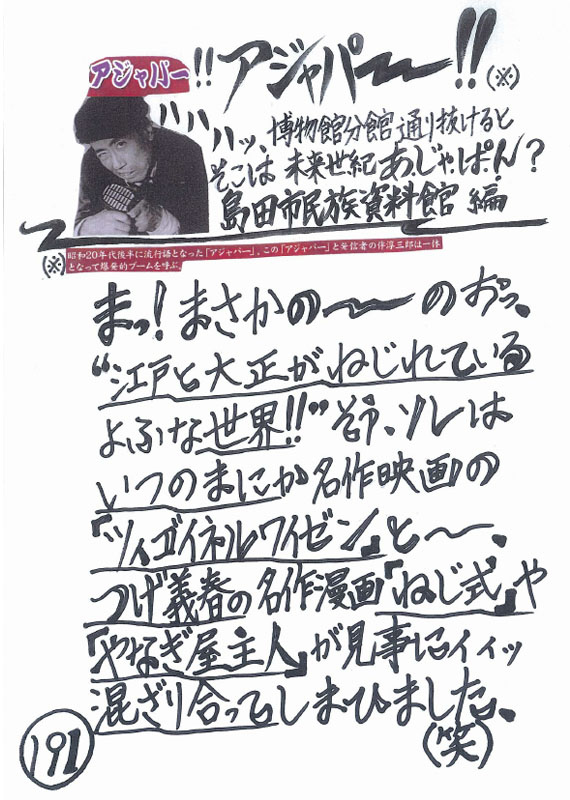 アジャパー
!! アジャパー〜!! (※)
ハハハッ、博物館分館通り抜けると
そこは 未来世紀 あ.じゃ.ぱ.ん?
島田市民族資料館 編
(※) 昭和20年代後半に流行語となった「アジャパー」。この「アジャパー」と発信者の伴淳三郎は一体
となって爆発的ブームを呼ぶ。
まっ! まさかの〜〜のおっ、
“江戸と大正がねじれている
よふな世界!!” そう、ソレは
いつのまにか名作映画の
『ツィゴイネルワイゼン』と〜、
つげ義春の名作漫画『ねじ式』や
『やなぎ屋主人』が見事にィィッ
混ざり合ってしまひました、
(笑)
191